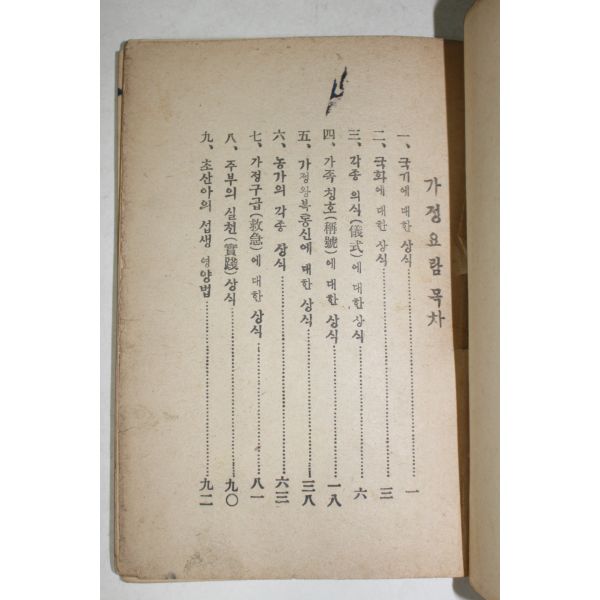 가정요람 목차
一、 국기에 대한 상식……一
二、 국화에 대한 상식……三
三、 각종 의식(儀式)에 대한 상식……六
四、 가족 칭호(稱號)에 대한 상식……一八
五、 가정왕복통신에 대한 상식……三八
六、 농가의 각종 상식……六三
七、 가정구급(救急)에 대한 상식……八一
八、 주부의 실천(實踐)상식……九〇
九、 초산아의 섭생 영양법……九二